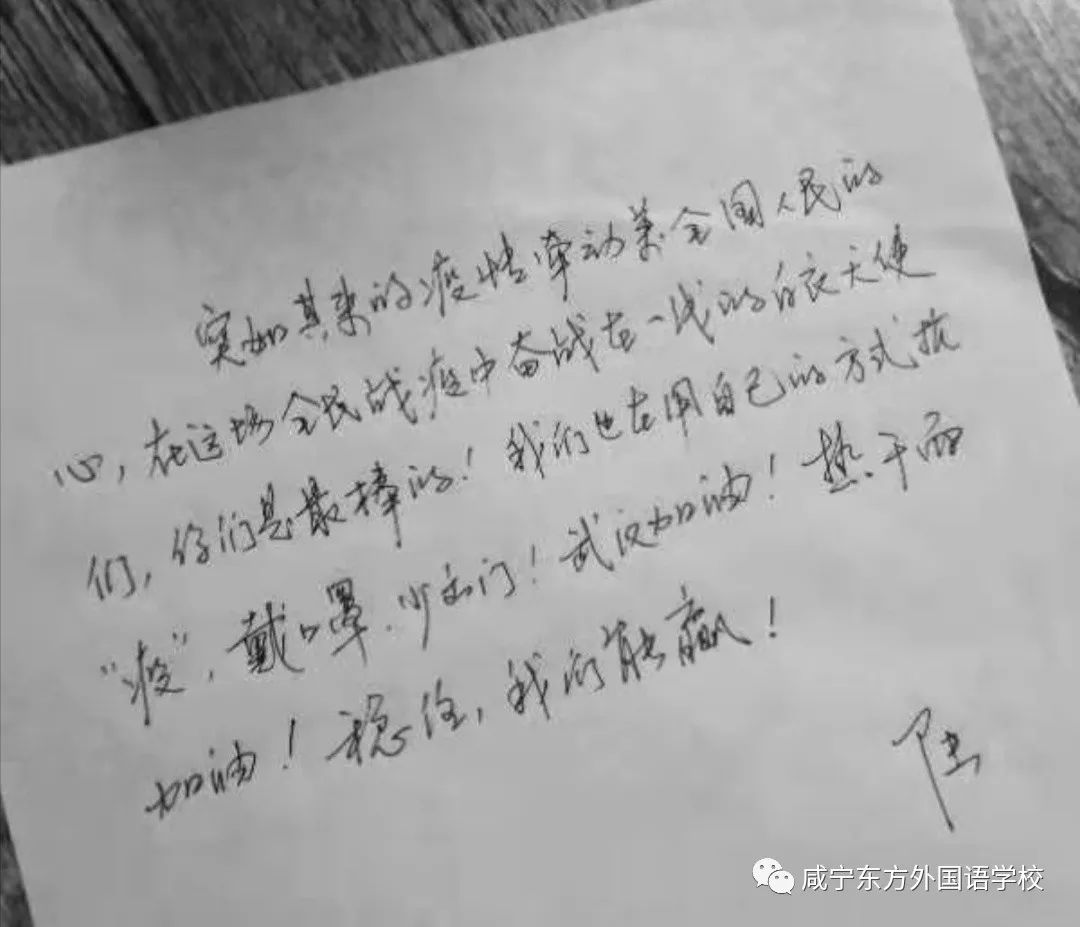 突如其来的疫情牵动着全国人民的
心，在这场全民战疫中奋战在一线的白衣天使
们，你们是最棒的！我们也在用自己的方式抗
“疫”，戴口罩.少出门！武汉加油！热干面
加油！稳住，我们能赢！
陆
咸宁东方外国语学校